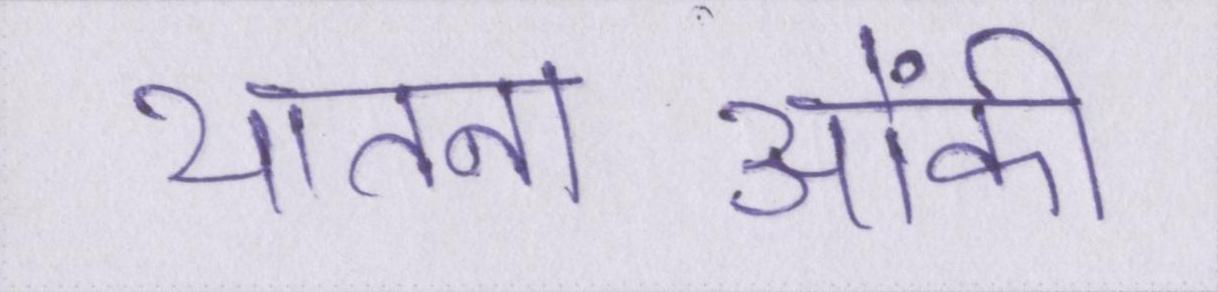 यातना ओंकी